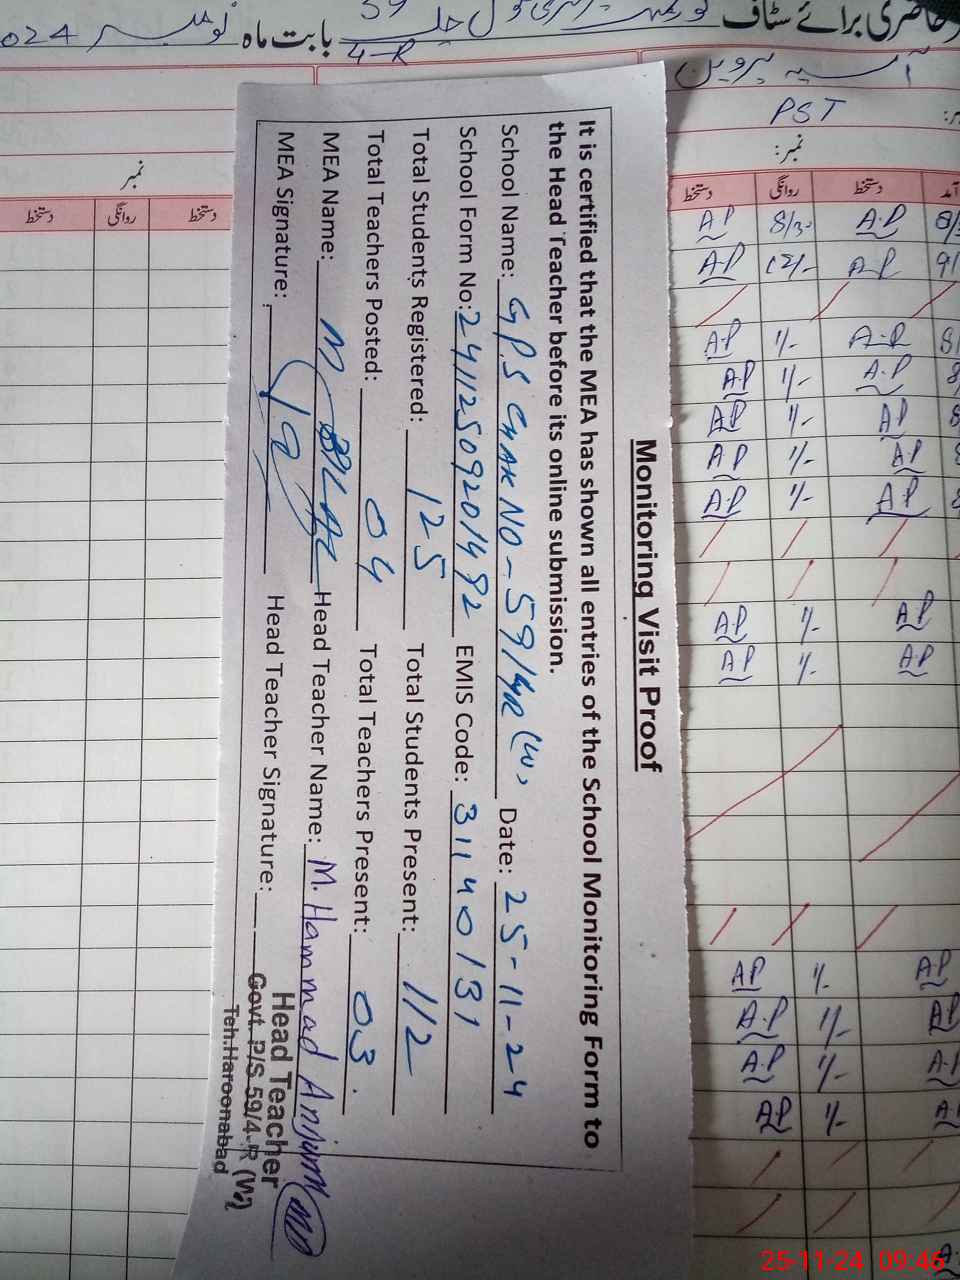 حاضری برائے سٹاف
بابت ماہ نومبر 2024
4-R
آسیہ پروین
PST
نمبر:
نمبر
آمد دستخط روانگی دستخط
دستخط روانگی دستخط
A.P 8/30 AP
A-P 12/- AP
A-P 1/- AP
A.P 1/- A.P
AP 1/- AP
AP 1/- AP
AP 1/- AP
AP 1/- AP
AP 1/- AP
AP 1/- AP
AP 1/- A.P
A.P 1/- A.P
AP 1/- AP
Monitoring Visit Proof
It is certified that the MEA has shown all entries of the School Monitoring Form to
the Head Teacher before its online submission.
School Name: G.P.S CHAK NO-59/4R (W) Date: 25-11-24
School Form No: 24112509201492 EMIS Code: 31140131
Total Students Registered: 125 Total Students Present: 112
Total Teachers Posted: 04 Total Teachers Present: 03
MEA Name: M Head Teacher Name: M. Hammad Anjum
MEA Signature: Head Teacher Signature:
Head Teacher
Govt. P/S 59/4-R (W)
Teh.Haroonabad
25-11-24 09:46